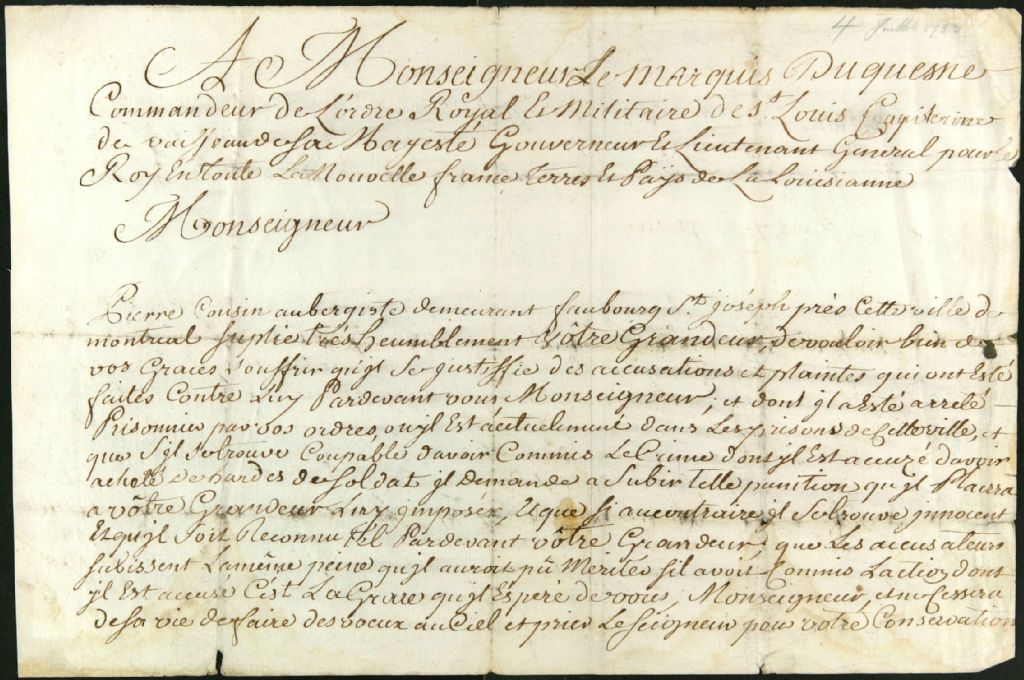 4 Juillet 1752
A Monseigneur Le marquis Duquesne
Commandeur de Lordre Royal Et Militaire de st. Louis Capitaine
de vaisseau de sa Majesté Gouverneur Et Lieutenant General pour le
Roy En toute La Nouvelle france terres Et Païs de La Louisianne
Monseigneur
Pierre Cousin aubergiste demeurant faubourg St. joseph prés Cette ville de
montreal suplie trés heumblement Vôtre Grandeur, de vouloir bien de
vos Graces souffrir qu'jl se justiffie des accusations et plaintes qui ont Esté
faites Contre Luy Pardevant vous Monseigneur, et dont jl a Esté arreté
Prisonnier par vos ordres, ou jl Est actuelement dans Les prisons de Cette ville, et
que S'jl se trouve Coupable d'avoir Commis Le Crime dont jl Est accuzé d'avoir
acheté de hardes de soldat jl demande a Subir telle punition qu'jl Plaira
a vôtre Grandeur Luy jmposer, Et que si au contraire jl se trouve jnnocent
Et qu'jl soit Reconnu tel Pardevant vôtre Grandeur, que Les accusateurs
subissent La même peine qu'jl auroit pû Meriter s'il avoit Commis L'action dont
jl Est accusé C'est La Grace qu'jl Espére de vous, Monseigneur, et ne Cessera
de sa vie de faire des voeux au Ciel et prier Le seigneur pour vôtre Conservation